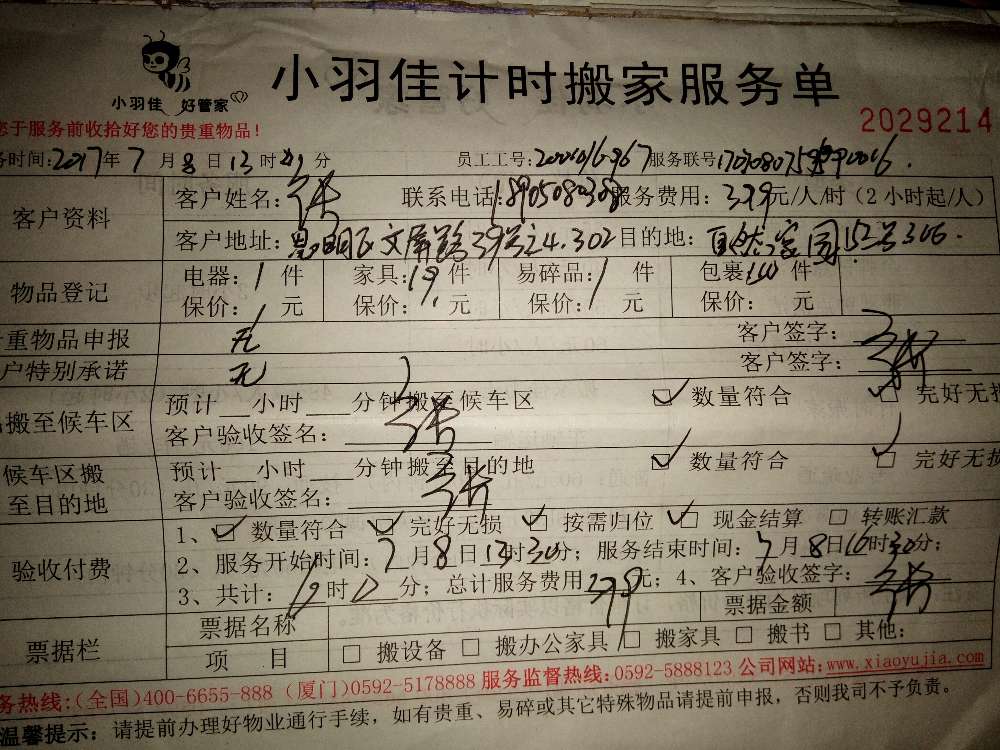 小羽佳 好管家
小羽佳计时搬家服务单
您于服务前收拾好您的贵重物品！
2029214
务时间：2017年7月8日13时 分 员工工号： 服务联号
客户资料
客户姓名：张 联系电话： 服务费用：379元/人/时（2小时起/人）
客户地址：思明区文屏路39号之4.302 目的地：自然家园 306.
物品登记
电器：1件 家具：19件 易碎品：1件 包裹 件
保价： 元 保价： 元 保价： 元 保价： 元
重物品申报 无 客户签字：张
户特别承诺 无 客户签字：张
搬至候车区
预计__小时___分钟搬至候车区 ☑ 数量符合 ☑ 完好无损
客户验收签名：张
候车区搬至目的地
预计__小时 分钟搬至目的地 ☑ 数量符合 ☑ 完好无损
客户验收签名：张
验收付费
1、☑ 数量符合 ☑ 完好无损 ☑ 按需归位 ☑ 现金结算 □ 转账汇款
2、服务开始时间：7月8日13时30分；服务结束时间：7月8日16时30分；
3、共计： 时 分；总计服务费用379元；4、客户验收签字：张
票据栏
票据名称 票据金额
项 目 □ 搬设备 □ 搬办公家具 □ 搬家具 □ 搬书 □ 其他：
务热线：(全国)400-6655-888 (厦门)0592-5178888 服务监督热线：0592-5888123 公司网站：www.xiaoyujia.com
温馨提示：请提前办理好物业通行手续，如有贵重、易碎或其它特殊物品请提前申报，否则我司不予负责。